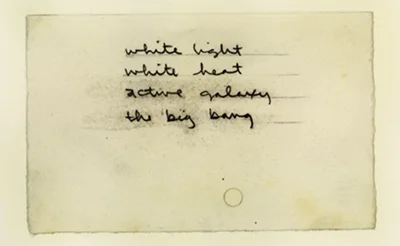 white light
white heat
active galaxy
the big bang